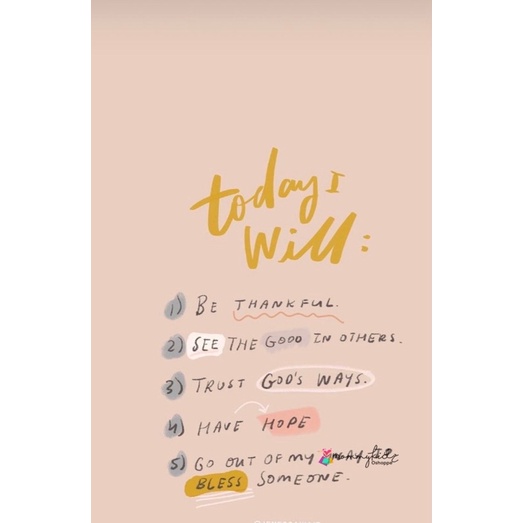 today I
Will:
1) BE THANKFUL.
2) SEE THE GOOD IN OTHERS.
3) TRUST GOD'S WAYS.
4) HAVE HOPE
5) GO OUT OF MY
BLESS SOMEONE.